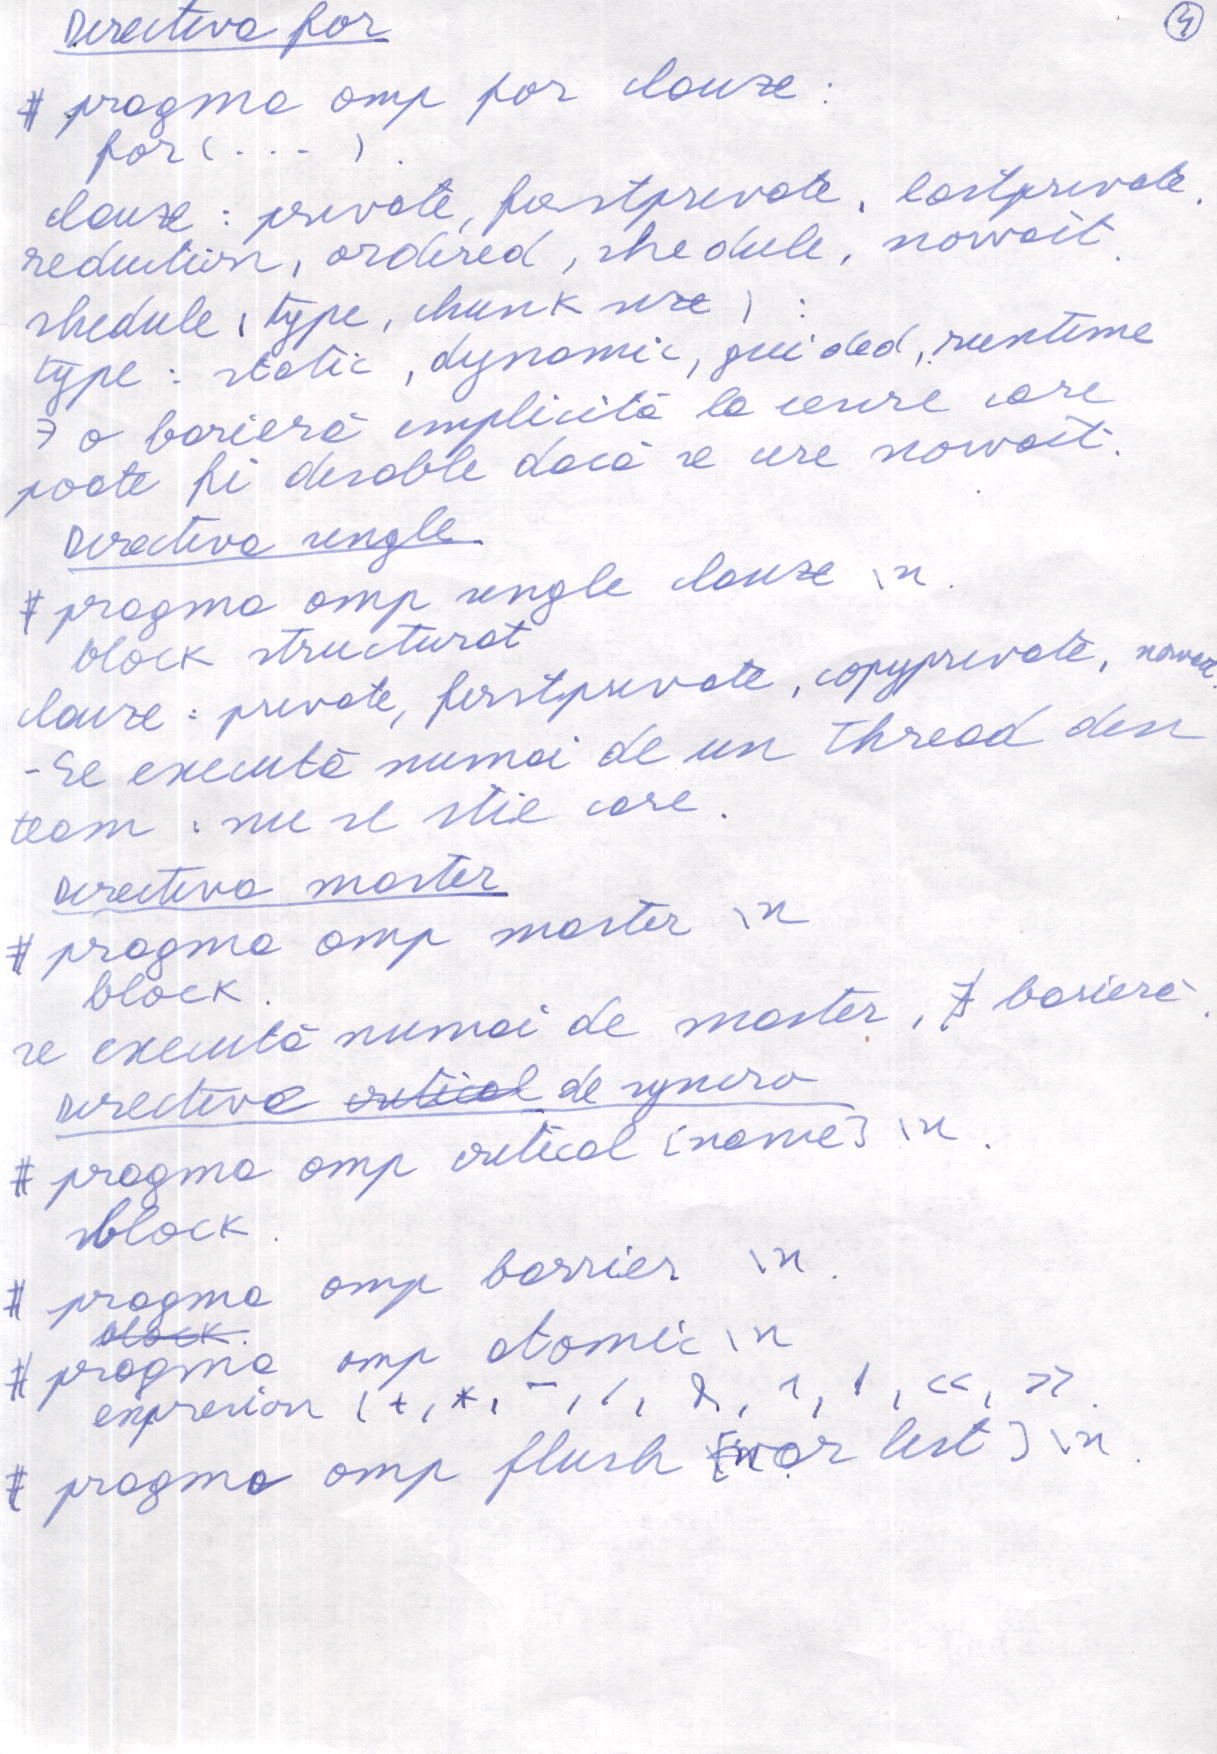 Directiva for
4
# pragma omp for clauze :
for ( . . . ) .
clauze : private, firstprivate, lastprivate.
reduction, ordered, shedule, nowait.
shedule ( type, chunk size ) :
type : static, dynamic, guided, runtime
∃ o barieră implicită la iesire care
poate fi disable dacă se cere nowait.
Directiva single
# pragma omp single clauze \n .
block structurat
clauze : private, firstprivate, copyprivate, nowait.
- Se execută numai de un thread din
team : nu se stie care .
Directiva master
# pragma omp master \n
block .
se execută numai de master, ∄ barieră .
Directive de syncro
# pragma omp critical [name] \n .
sblock .
# pragma omp barrier \n .
# pragma omp atomic \n
expresion ( +, *, -, /, &, ^, |, <<, >> .
# pragma omp flush [var list] \n .